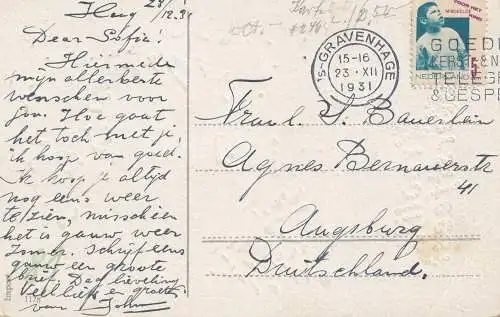 Haag 23/12.31
Dear Sofie!
Hiermede
mijn allerbeste
wenschen voor
jou. Hoe gaat
het toch met je
ik hoop van goed.
Ik hoop je altijd
nog eens weer
te zien, misschien
het is gauw weer
Zomer. Schrijf eens
gauw een groote
brief. Dag lieveling
Veel liefs en groeten
van John
1178
's-GRAVENHAGE
15-16
23.XII
1931
VOOR HET
KIND
NEDERLAND
5
GOEDE
KERST-& N
TELEG
& GESPR
Fraul. S. Bauerlein
Agnes Bernauerstr
41
Augsburg
Duitschland.